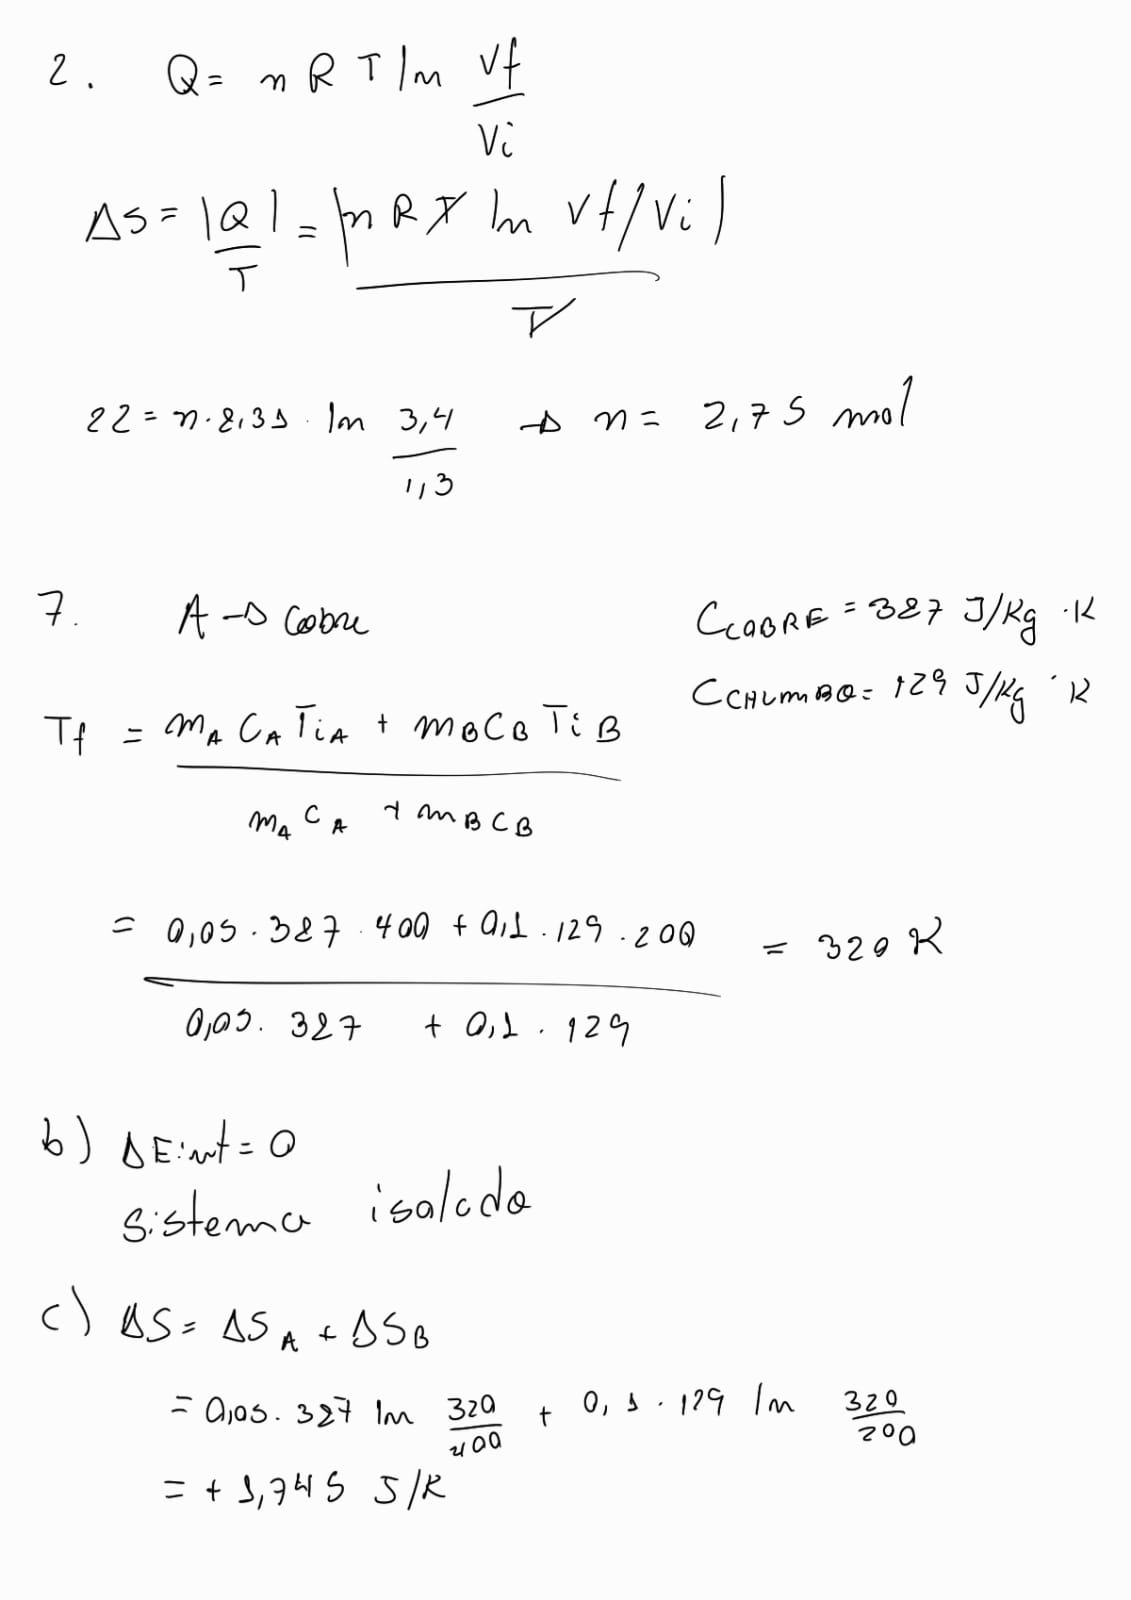 2. Q = n R T ln Vf / Vi
ΔS = |Q| / T = |n R T ln Vf/Vi| / T
22 = n · 8,31 · ln 3,4 / 1,3 → n = 2,75 mol
7. A → Cobre
C COBRE = 387 J/Kg · K
C CHUMBO = 129 J/Kg · K
Tf = mA CA TiA + mB CB TiB / mA CA + mB CB
= 0,05 · 387 · 400 + 0,1 · 129 · 200 / 0,05 · 387 + 0,1 · 129 = 320 K
b) ΔEint = 0
Sistema isolado
c) ΔS = ΔSA + ΔSB
= 0,05 · 387 ln 320 / 400 + 0,1 · 129 ln 320 / 200
= + 1,745 J/K